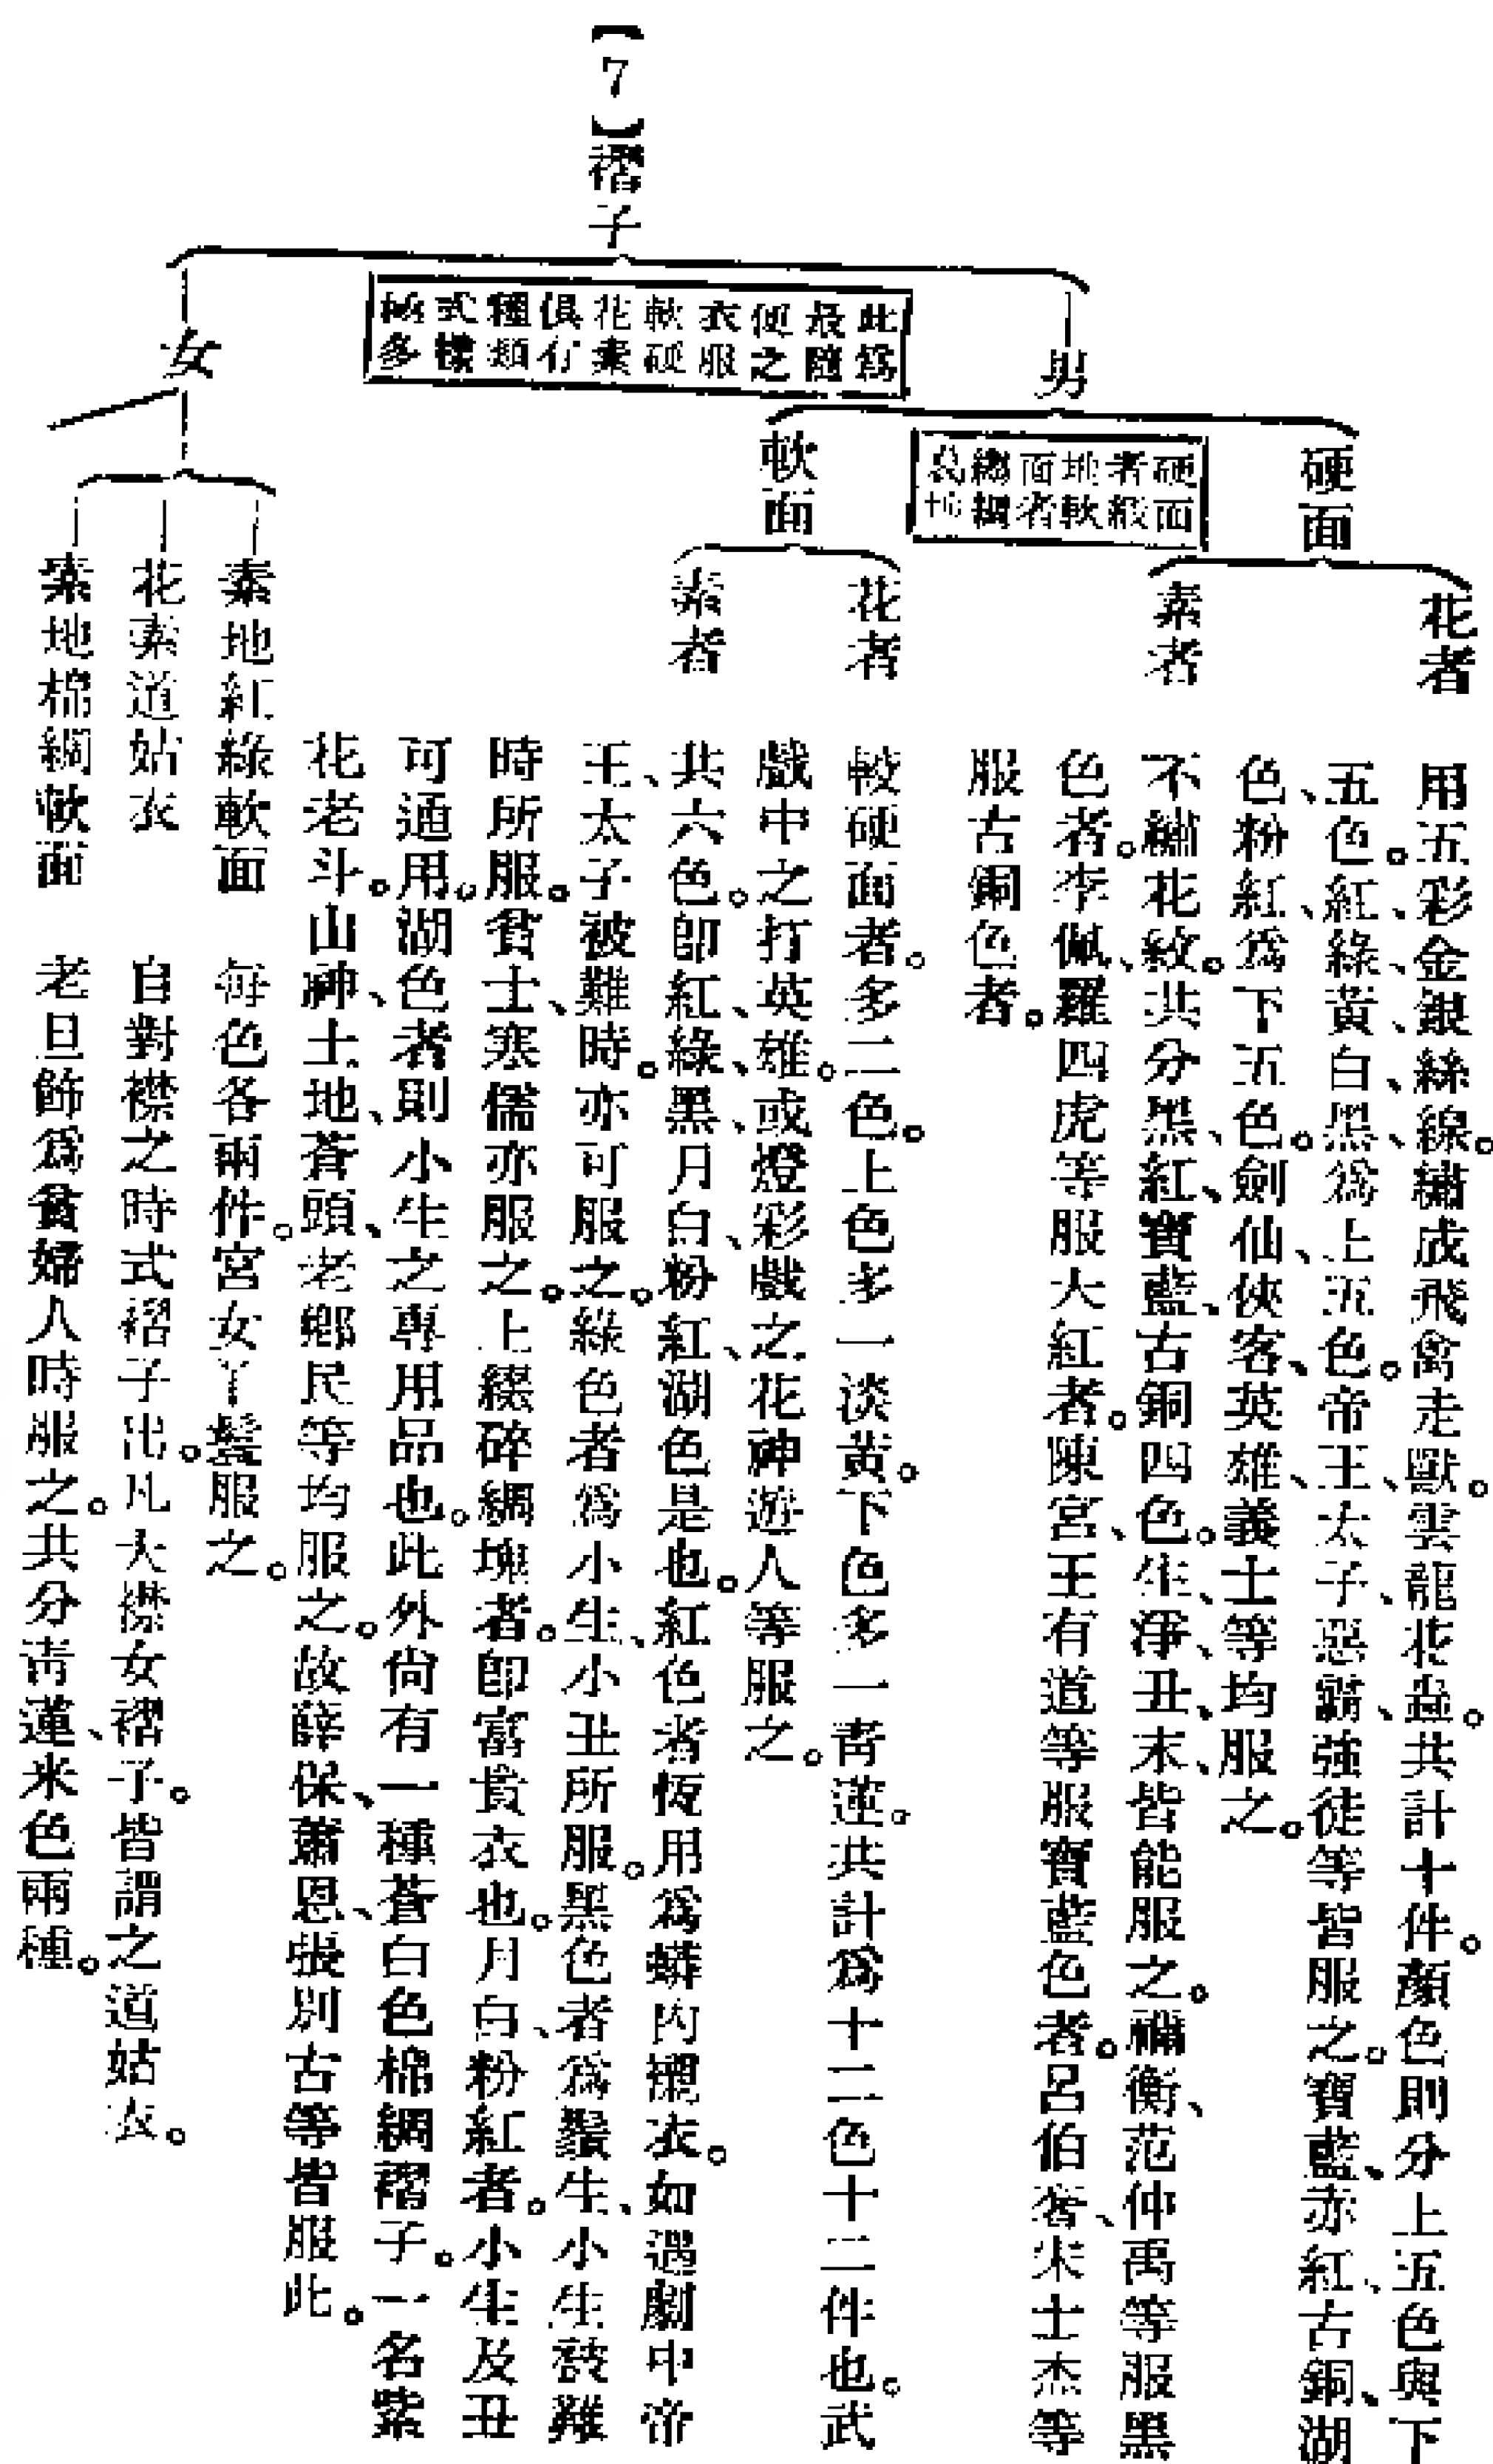 【7】褶子
此爲最隨便之衣服軟硬花素俱有種類式樣極多
男
硬面
硬面者緞地軟面者縐綢爲地
花者
用五彩金銀絲線。繡成飛禽走獸。雲龍花盆。共計十件。顏色則分上五色與下
五色。紅、綠、黃、白、黑、爲上五色。帝王、太子、惡霸、強徒等皆服之。寶藍、赤紅、古銅、湖
色、粉紅、爲下五色。劍仙、俠客、英雄、義士等均服之。
素者
不繡花紋。共分黑、紅、寶藍、古銅四色。生、淨、丑、末、皆能服之。禰衡、范仲禹等服黑
色者。李佩、羅四虎等服大紅者。陳宮、王有道等服寶藍色者。呂伯奢、宋士杰等
服古銅色者。
軟面
花者
較硬面者。多二色。上色多一淡黃。下色多一青蓮。共計爲十二色十二件也。武
戲中之打英雄。或燈彩戲之花神遊人等服之。
素者
共六色。卽紅、綠、黑、月白、粉紅、湖色是也。紅色者恆用爲蟒內襯衣。如遇劇中帝
王、太子被難時。亦可服之。綠色者爲小生、小丑所服。黑色者、爲鬚生、小生落難
時所服。貧士、寒儒亦服之。上綴碎綢塊者。卽富貴衣也。月白、粉紅者。小生及丑
可通用。湖色者、則小生之專用品也。此外尚有一種蒼白色棉綢褶子。一名紫
花老斗。山神、土地、蒼頭、老鄉民等均服之。故薛保、蕭恩、張別古等皆服此。
女
素地紅綠軟面
每色各兩件。宮女丫鬟服之。
花素道姑衣
自對襟之時式褶子出。凡大襟女褶子。皆謂之道姑衣。
素地棉綢軟面
老旦飾爲貧婦人時服之。共分青蓮、米色兩種。